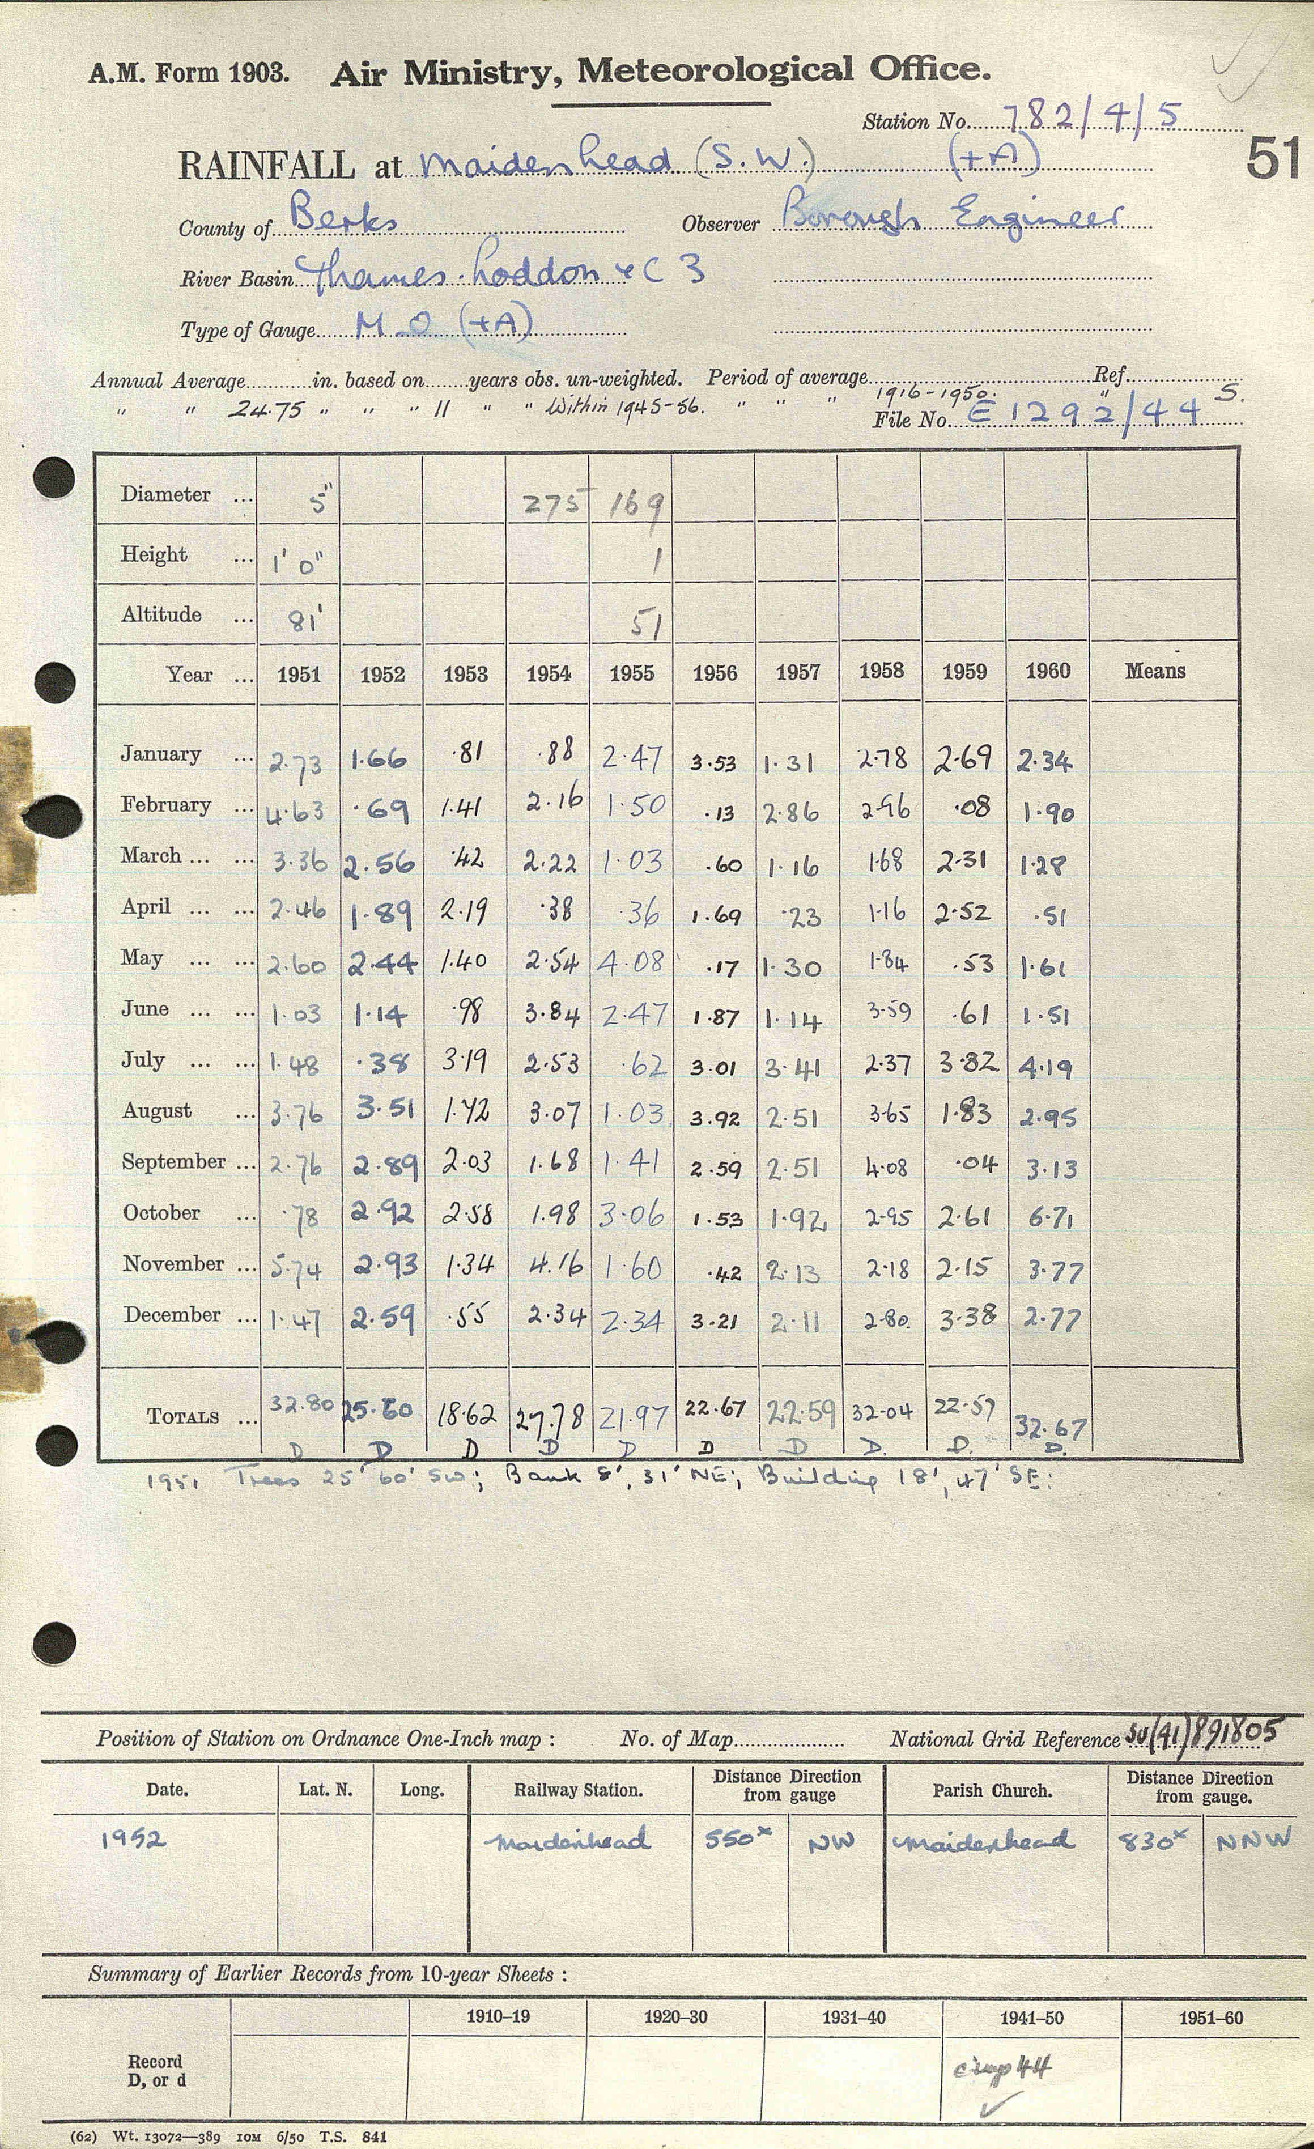 A.M. Form 1903. Air Ministry, Meteorological Office.
Station No. 782/4/5
RAINFALL at Maidenhead (S.W.) (+A)
51
County of Berks Observer Borough Engineer
River Basin Thames. Loddon + C 3
Type of Gauge M O (+A)
Annual Average in. based on years obs. un-weighted. Period of average Ref.
" " 24.75 " " " 11 " " Within 1945-56. " " " 1916-1950. " S.
File No. E 1292/44
Diameter ... 5" 275 169
Height ... 1' 0" 1
Altitude ... 81' 51
Year ... 1951 1952 1953 1954 1955 1956 1957 1958 1959 1960 Means
January ... 2.73 1.66 .81 .88 2.47 3.53 1.31 2.78 2.69 2.34
February ... 4.63 .69 1.41 2.16 1.50 .13 2.86 2.96 .08 1.90
March ... ... 3.36 2.56 .42 2.22 1.03 .60 1.16 1.68 2.31 1.28
April ... ... 2.46 1.89 2.19 .38 .36 1.69 .23 1.16 2.52 .51
May ... ... 2.60 2.44 1.40 2.54 4.08 .17 1.30 1.84 .53 1.61
June ... ... 1.03 1.14 .98 3.84 2.47 1.87 1.14 3.59 .61 1.51
July ... ... 1.48 .38 3.19 2.53 .62 3.01 3.41 2.37 3.82 4.19
August ... 3.76 3.51 1.72 3.07 1.03 3.92 2.51 3.65 1.83 2.95
September ... 2.76 2.89 2.03 1.68 1.41 2.59 2.51 4.08 .04 3.13
October ... .78 2.92 2.58 1.98 3.06 1.53 1.92 2.95 2.61 6.71
November ... 5.74 2.93 1.34 4.16 1.60 .42 2.13 2.18 2.15 3.77
December ... 1.47 2.59 .55 2.34 2.34 3.21 2.11 2.80 3.38 2.77
TOTALS ... 32.80 25.60 18.62 27.78 21.97 22.67 22.59 32.04 22.57 32.67
D D D D D D D D. D. D.
1951 Trees 25' 60' SW; Bank 8', 31' NE; Building 18', 47' SE:
Position of Station on Ordnance One-Inch map : No. of Map National Grid Reference SU(41)891805
Date. Lat. N. Long. Railway Station. Distance Direction from gauge Parish Church. Distance Direction from gauge.
1952 Maidenhead 550x NW Maidenhead 830x NNW
Summary of Earlier Records from 10-year Sheets :
1910–19 1920–30 1931–40 1941–50 1951–60
Record D, or d 44
(62) Wt. 13072—389 10M 6/50 T.S. 841